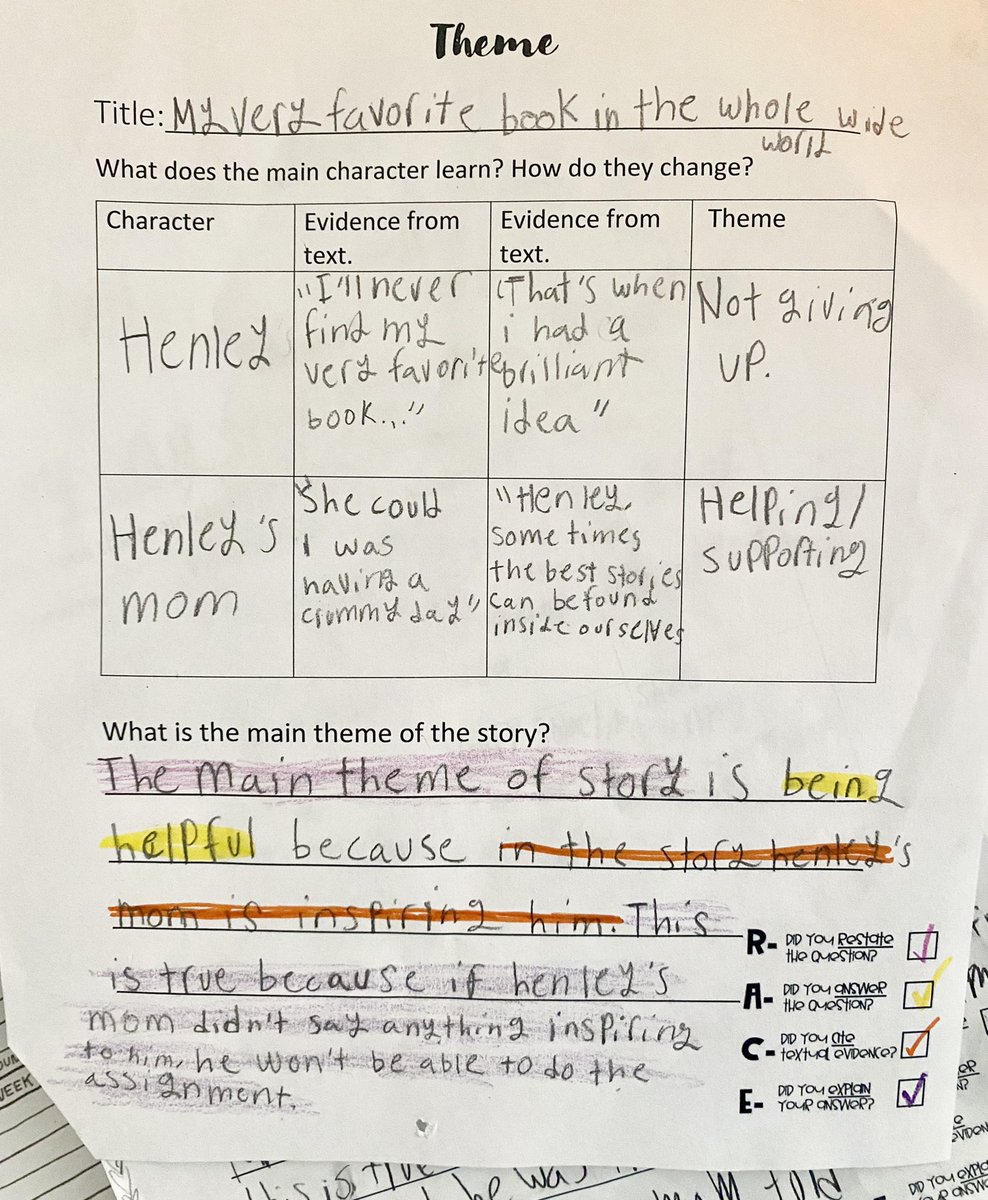 Theme
Title: My very favorite book in the whole wide
world
What does the main character learn? How do they change?
Character
Evidence from
text.
Evidence from
text.
Theme
Henley
"I'll never
find my
very favorite
book..."
"That's when
i had a
brilliant
idea"
Not giving
up.
Henley's
mom
"She could
I was
having a
crummy day"
"Henley,
some times
the best stories
can be found
inside ourselves
Helping/
supporting
What is the main theme of the story?
The main theme of story is being
helpful because in the story henley's
mom is inspiring him. This
is true because if henley's
mom didn't say anything inspiring
to him, he won't be able to do the
assignment.
R- DID YOU RESTATE
the QUESTION?
A- DID YOU ANSWER
the QUESTION?
C- DID YOU CITE
textual evidence?
E- DID YOU EXPLAIN
YOUR ANSWER?
WEEK
DID YOU EXPLAIN
YOUR ANSWER?